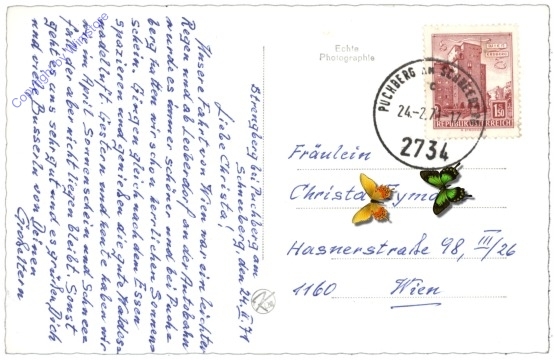 Strengberg bei Puchberg am
Schneeberg, den 24.II.71
Liebe Christa!
Unsere Fahrt von Wien war ein leichter
Regen und ab Leobersdorf an der Autobahn
wurde es immer schöner und bei Puch-
berg hatten wir schon herrlichen Sonnen-
schein. Gingen gleich nach dem Essen
spazieren und genießen die gute Waldes-
nadelluft. Gestern und heute haben wir
wie im April Sonnenschein und Schnee
der aber nicht liegen bleibt. Sonst
geht es uns sehr gut und es grüßen Dich
und viele Busserln von Deinen
Großeltern
Echte
Photographie
PUCHBERG AM SCHNEEBERG
c
24.-2.71-17
2734
WIEN
1.50
REPUBLIK ÖSTERREICH
Fräulein
Christa
Hasnerstraße 98, III/26
1160 Wien